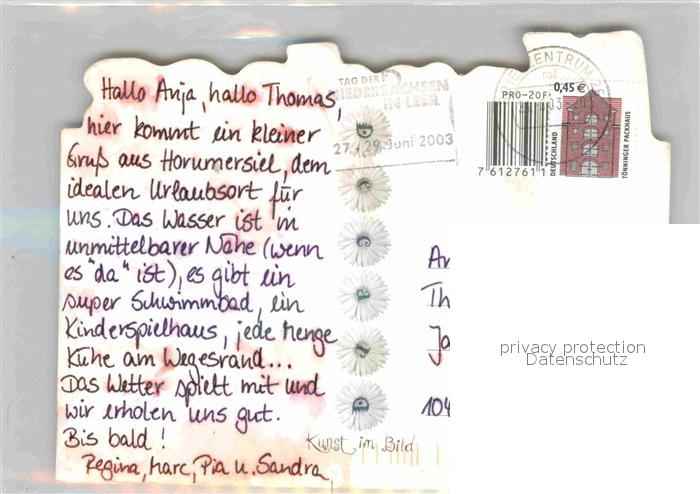 Hallo Anja, hallo Thomas,
hier kommt ein kleiner
Gruß aus Horumersiel, dem
idealen Urlaubsort für
uns. Das Wasser ist in
unmittelbarer Nähe (wenn
es "da" ist), es gibt ein
super Schwimmbad, ein
Kinderspielhaus, jede Menge
Kühe am Wegesrand...
Das Wetter spielt mit und
wir erholen uns gut.
Bis bald!
Regina, Marc, Pia u. Sandra
Kunst im Bild
TAG DER
NIEDERSACHSEN
IN LEER
27.-29. Juni 2003
PRO-20F
7 612761 1
BRIEFZENTRUM 26
0,45 €
DEUTSCHLAND
TÖNNINGER PACKHAUS
An
Th
Ja
104
privacy protection
Datenschutz